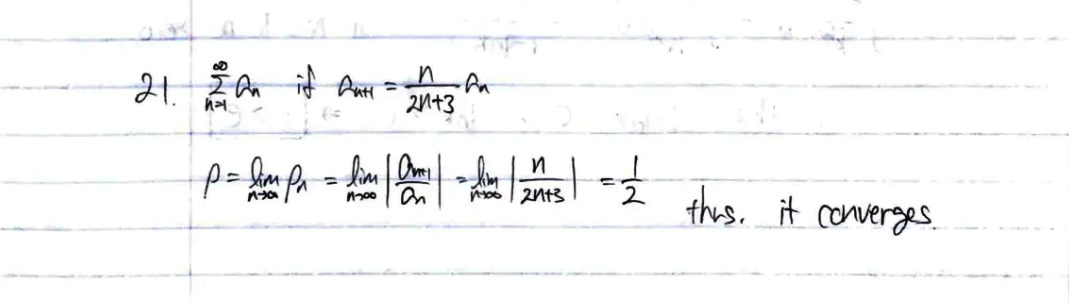 21. $\sum_{n=1}^{\infty} a_n$ if $a_{n+1} = \frac{n}{2n+3} a_n$
$\rho = \lim_{n \to \infty} \rho_n = \lim_{n \to \infty} \left| \frac{a_{n+1}}{a_n} \right| = \lim_{n \to \infty} \left| \frac{n}{2n+3} \right| = \frac{1}{2}$ thus. it converges.